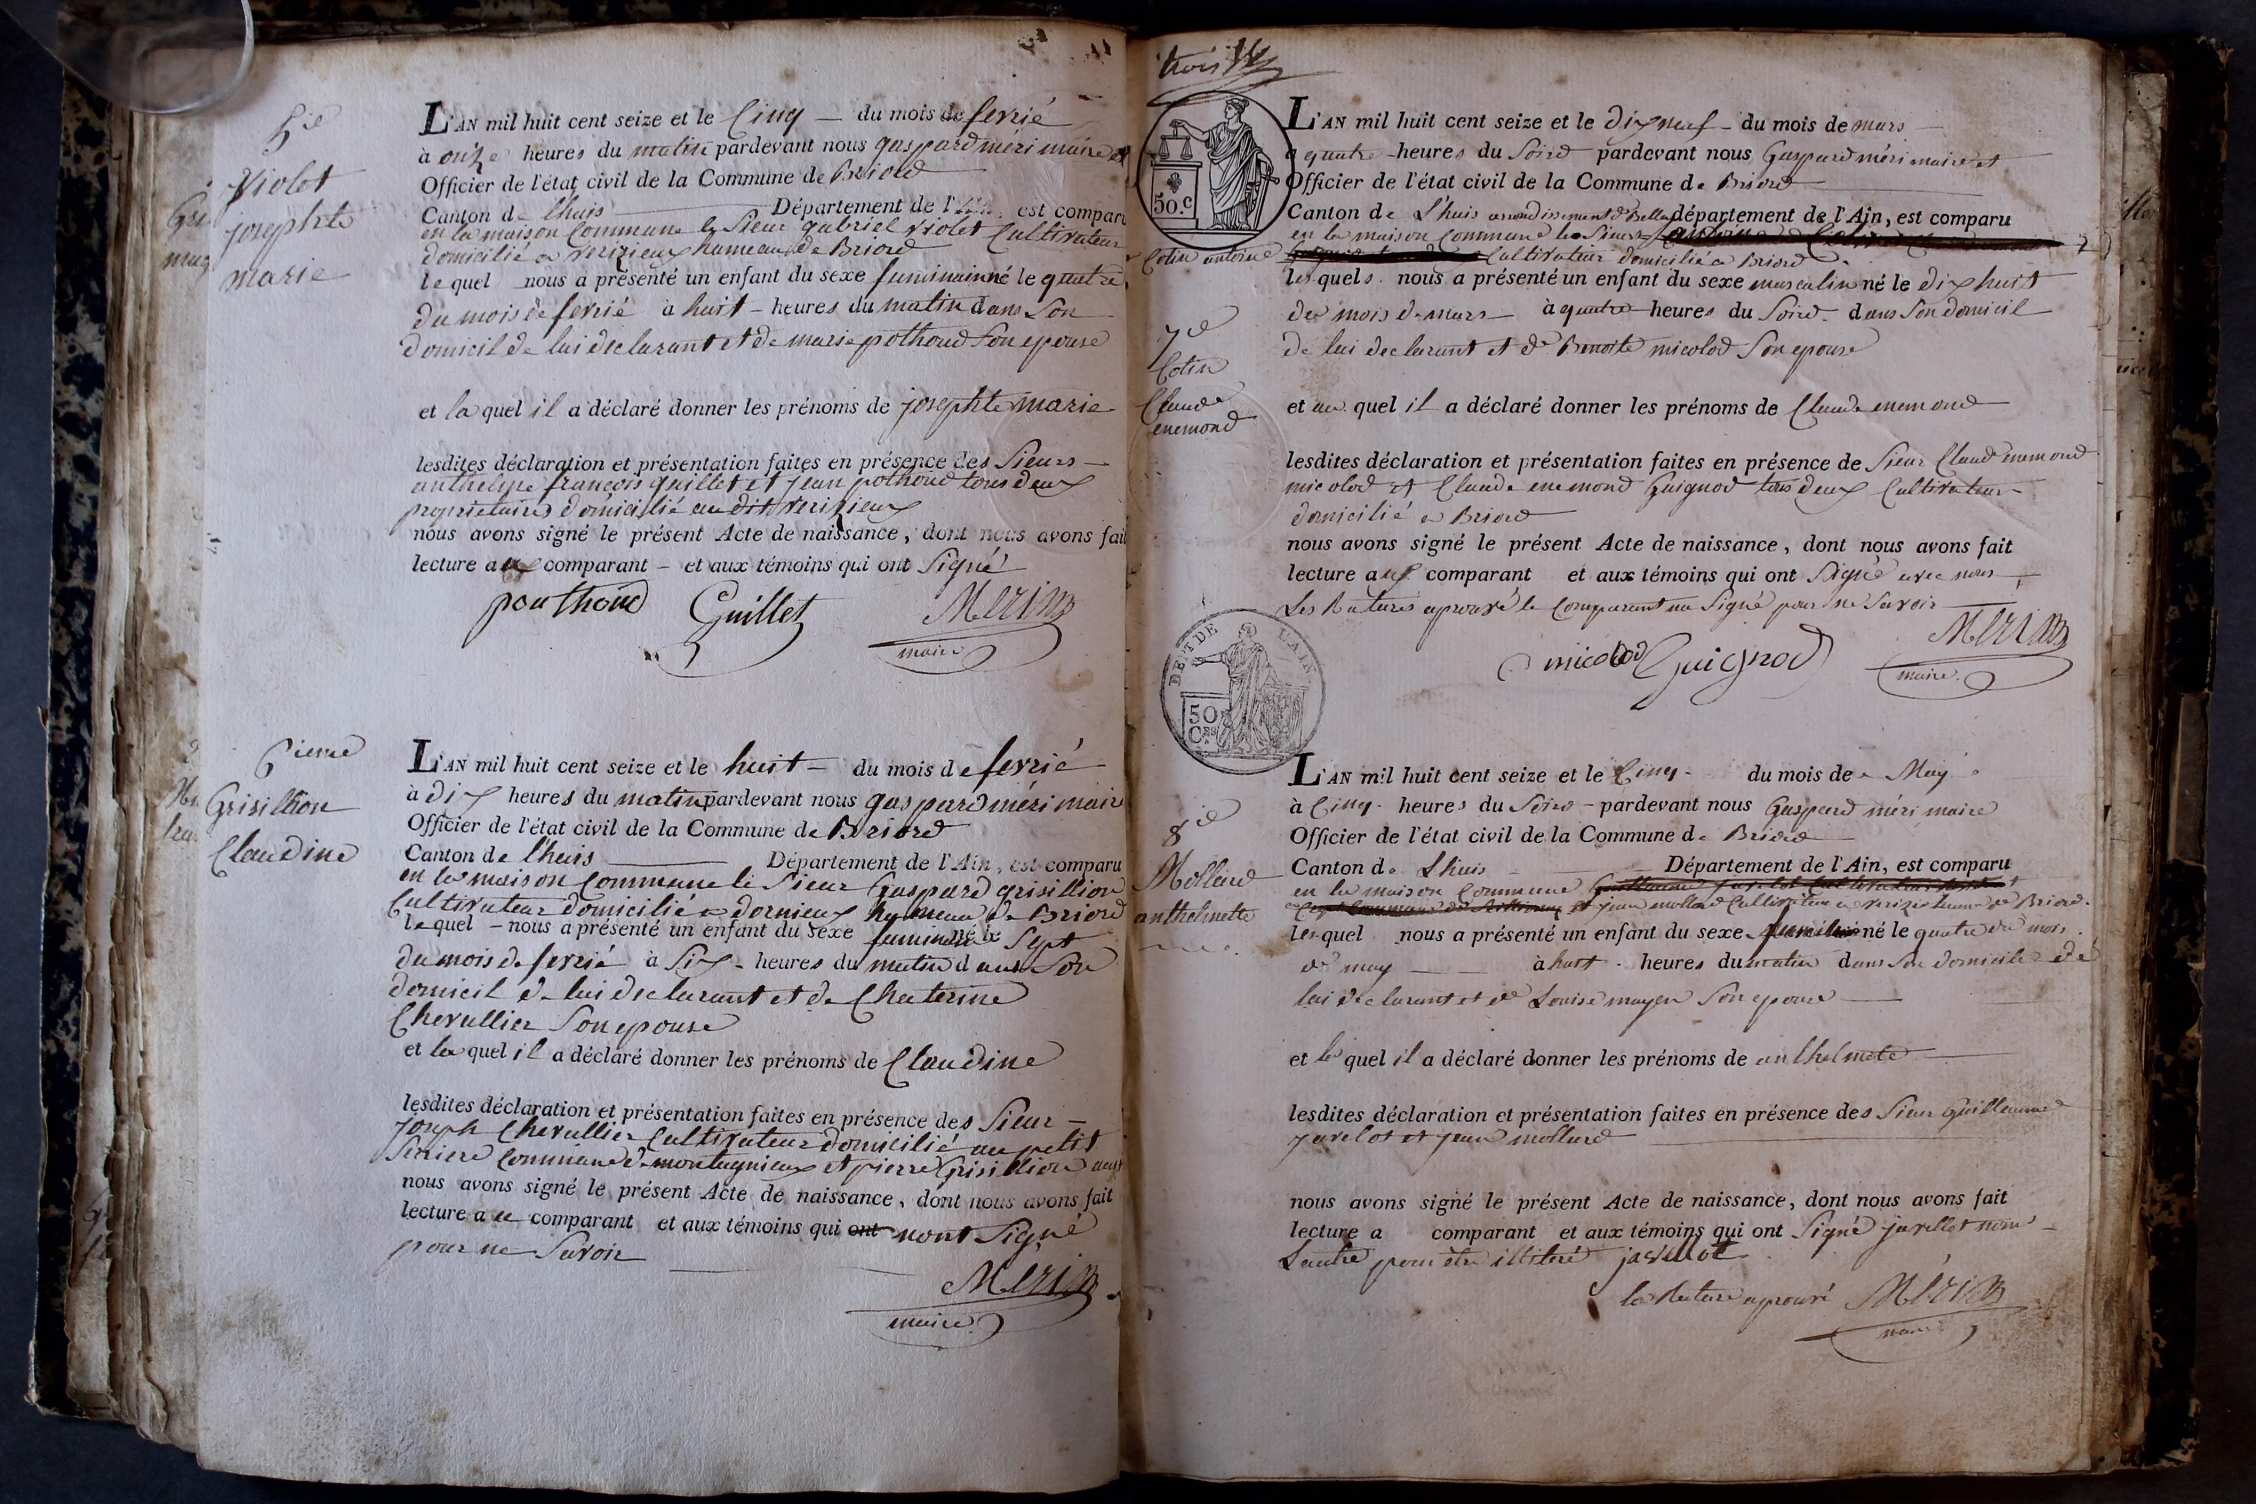 5ie
Violet
josephte
marie
L'AN mil huit cent seize et le Cinq — du mois de fevrié
à onze heures du matin pardevant nous gaspard méri maire et
Officier de l'état civil de la Commune de Briord
Canton de lhuis — Département de l'Ain, est comparu
en la maison Commune le Sieur gabriel violet Cultivateur
domicilié a verizieux hameau de Briord
lequel nous a présenté un enfant du sexe feminin né le quatre
du mois de fevrié à huit – heures du matin dans Son
domicil de lui declarant et de marie pothoud Son epouse
et la quel il a déclaré donner les prénoms de josephte marie
lesdites déclaration et présentation faites en présence des Sieurs —
anthelme françois guillet et jean pothoud tous deux
proprietaires domicilié au dit verizieux
nous avons signé le présent Acte de naissance, dont nous avons fait
lecture aux comparant – et aux témoins qui ont Signé
pouthoud Guillet Meri
maire
6ieme
Grisillion
Claudine
L'AN mil huit cent seize et le huit — du mois de fevrié
à dix heures du matin pardevant nous gaspard méri maire
Officier de l'état civil de la Commune de Briord
Canton de lhuis — Département de l'Ain, est comparu
en la maison Commune le Sieur Gaspard grisillion
Cultivateur domicilié a dornieux hameau de Briord
lequel – nous a présenté un enfant du sexe feminin né le Sept
du mois de fevrié à Six – heures du matin dans Son
domicil de lui declarant et de Chaterine
Chevallier Son epouse
et la quel il a déclaré donner les prénoms de Claudine
lesdites déclaration et présentation faites en présence des Sieur —
joseph Chevallier Cultivateur domicilié au petit
Commune de montagnieux et pierre Grisillion
nous avons signé le présent Acte de naissance, dont nous avons fait
lecture au comparant et aux témoins qui ont nont Signé
pour ne Savoir
Meri
maire
trois
50.c
Colin antoine
7ie
Colin
Claude
enemond
L'AN mil huit cent seize et le dix neuf – du mois de mars
a quatre heures du Soird pardevant nous Gaspard méri maire et
Officier de l'état civil de la Commune de Briord
Canton de Lhuis arrondissement de Belley département de l'Ain, est comparu
en la maison Commune le Sieur
Cultivateur domicilié a Briord
lesquels nous a présenté un enfant du sexe masculin né le dix huit
du mois de mars à quatre heures du Soird dans Son domicil
de lui declarant et de Benoite micolod Son epouse
et au quel il a déclaré donner les prénoms de Claude enemond
lesdites déclaration et présentation faites en présence de Sieur Claude enemond
micolod et Claude enemond Guignod tous deux Cultivateur
domicilié a Briord
nous avons signé le présent Acte de naissance, dont nous avons fait
lecture aux comparant et aux témoins qui ont Signé avec nous
Les Ratures aprouvé le Comparant na Signé pour ne Savoir
micolod Guignod Meri
maire
DE PT DE L'AIN
50
Ces
8ie
Mollard
anthelmette
L'AN mil huit cent seize et le Cinq – du mois de May
à Cinq heures du Soird – pardevant nous Gaspard méri maire
Officier de l'état civil de la Commune de Briord
Canton de Lhuis — Département de l'Ain, est comparu
en la maison Commune Guillaume javelot Cultivateur
jean mollard Cultivateur a verizieu de Briord
lesquel nous a présenté un enfant du sexe feminin né le quatre du mois
de may — à huit heures du matin dans Son domicile de
lui declarant et de Louise mayen Son epouse
et la quel il a déclaré donner les prénoms de anthelmete
lesdites déclaration et présentation faites en présence des Sieur Guillaume
javelot et jean mollard
nous avons signé le présent Acte de naissance, dont nous avons fait
lecture a comparant et aux témoins qui ont Signé javellot non
Lautre pour être illiteré javellot
la Rature aprouvé Méri
maire